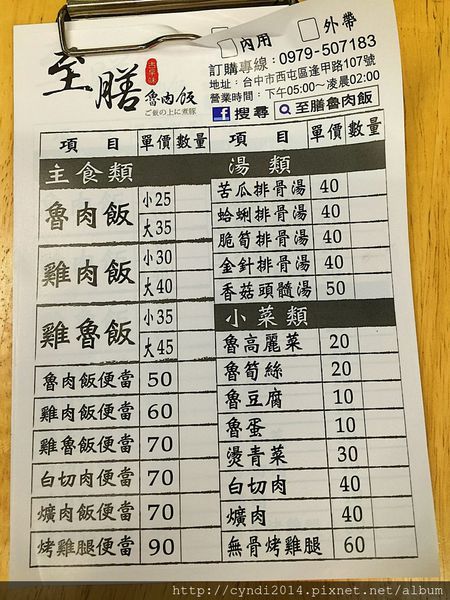 至膳
魯肉飯
ご飯の上に煮豚
內用
外帶
訂購專線：0979-507183
地址：台中市西屯區逢甲路107號
營業時間：下午05:00~凌晨02:00
f 搜尋 至膳魯肉飯
項目 單價 數量
主食類
魯肉飯 小25
大35
雞肉飯 小30
大40
雞魯飯 小35
大45
魯肉飯便當 50
雞肉飯便當 60
雞魯飯便當 70
白切肉便當 70
爌肉飯便當 70
烤雞腿便當 90
項目 單價 數量
湯類
苦瓜排骨湯 40
蛤蜊排骨湯 40
脆筍排骨湯 40
金針排骨湯 40
香菇頭髓湯 50
小菜類
魯高麗菜 20
魯筍絲 20
魯豆腐 10
魯蛋 10
燙青菜 30
白切肉 40
爌肉 40
無骨烤雞腿 60
http://cyndi2014.pixnet.net/album